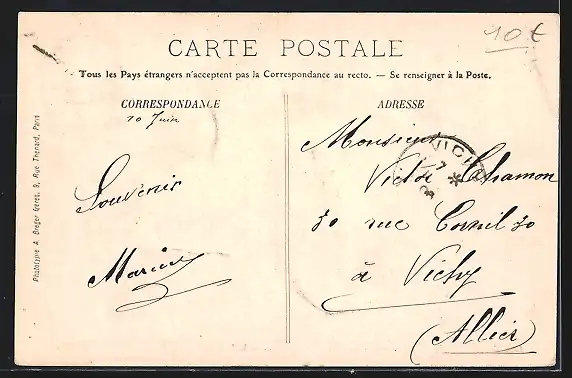 10 €
CARTE POSTALE
Tous les Pays étrangers n'acceptent pas la Correspondance au recto. — Se renseigner à la Poste.
CORRESPONDANCE
10 Juin
Souvenir
ADRESSE
Monsieur
Victor Chamon
30 rue 30
à Vichy
(Allier)
VICHY
Phototypie A. Breger frères, 9, Rue Thénard, Paris